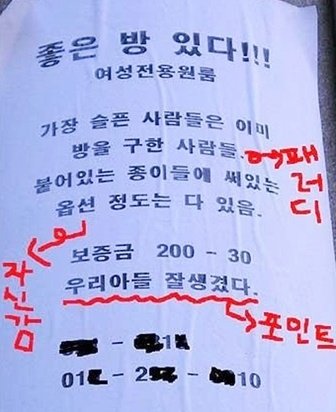 좋은 방 있다!!!
여성전용원룸
가장 슬픈 사람들은 이미
방을 구한 사람들.
붙어있는 종이들에 써있는
옵션 정도는 다 있음.
패러디
보증금 200 - 30
자신감
우리아들 잘생겼다.
포인트
01 - 2 - 10